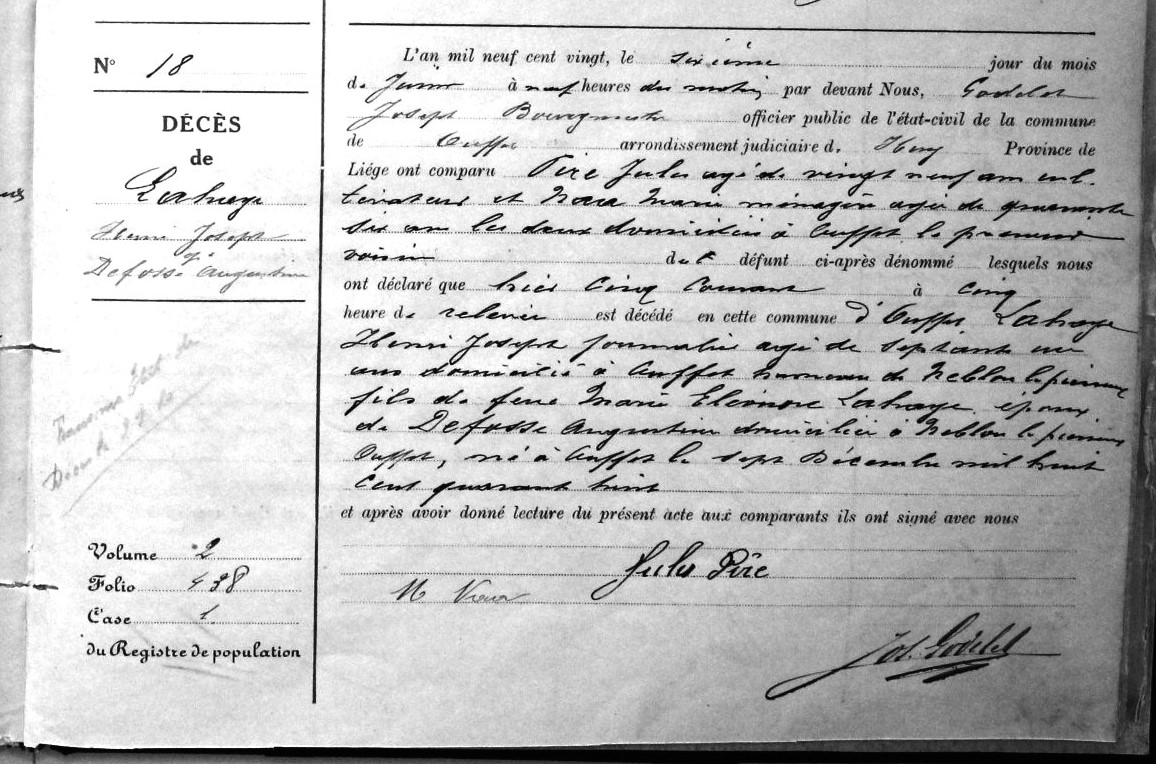 N° 18
DÉCÈS
de
Lahaye
Henri Joseph
Defosse Augustine
Volume 2
Folio 438
Case 1
du Registre de population
L'an mil neuf cent vingt, le sixième jour du mois
de Juin à neuf heures du matin par devant Nous, Godelet
Joseph Bourgmestre officier public de l'état-civil de la commune
de Ouffet arrondissement judiciaire de Huy Province de
Liége ont comparu Pire Jules agé de vingt neuf ans cul-
tivateur et Marie ménagère agée de quarante
six ans les deux domiciliés à Ouffet le premier
voisin du défunt ci-après dénommé lesquels nous
ont déclaré que hier cinq courant à cinq
heure de relevée est décédé en cette commune d'Ouffet Lahaye
Henri Joseph journalier agé de septante un
ans domicilié à Ouffet hameau de Neblon le pierreux
fils de feue Marie Eléonore Lahaye, époux
de Defosse Augustine domiciliée à Neblon le pierreux
Ouffet, né à Ouffet le sept Décembre mil huit
cent quarant huit
et après avoir donné lecture du présent acte aux comparants ils ont signé avec nous
Jules Pire
M
Jos. Godelet